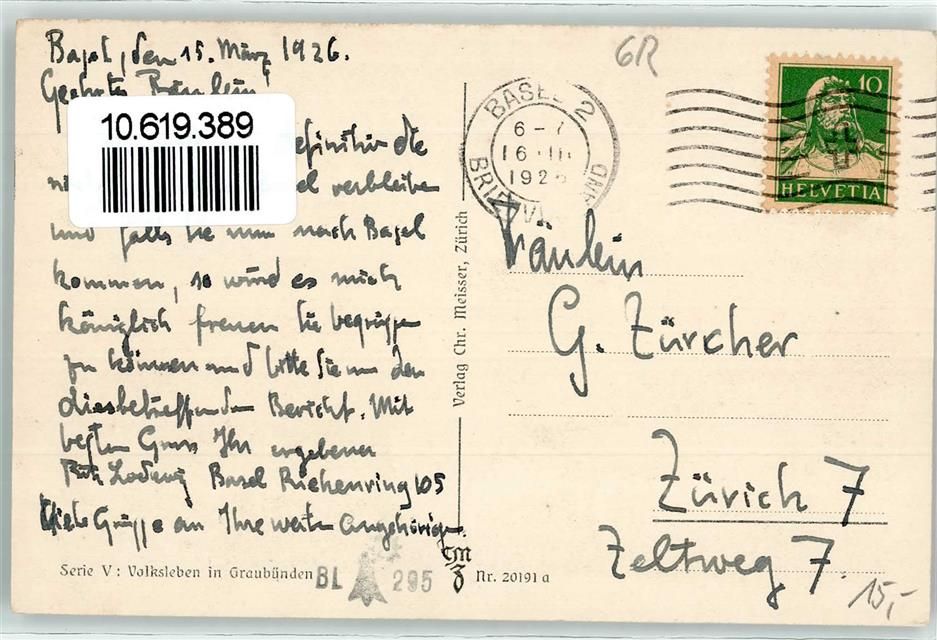 Basel, den 15. März 1926.
Geehrtes Fräulein,
10.619.389
definitiv die
verbleiben
und falls Sie nun nach Basel
kommen, so wird es mich
königlich freuen Sie begrüssen
zu können und bitte Sie um den
diesbetreffenden Bericht. Mit
besten Gruss Ihr ergebener
Fritz Lodewig Basel Riehenring 105
Viele Grüsse an Ihre werten Angehörigen.
Serie V: Volksleben in Graubünden
BL 295
Verlag Chr. Meisser, Zürich
CM
Z
Nr. 20191 a
6R
BASEL 2
6-7
16.III.
1926
10
HELVETIA
Fräulein
G. Zürcher
Zürich 7
Zeltweg 7.
15,-